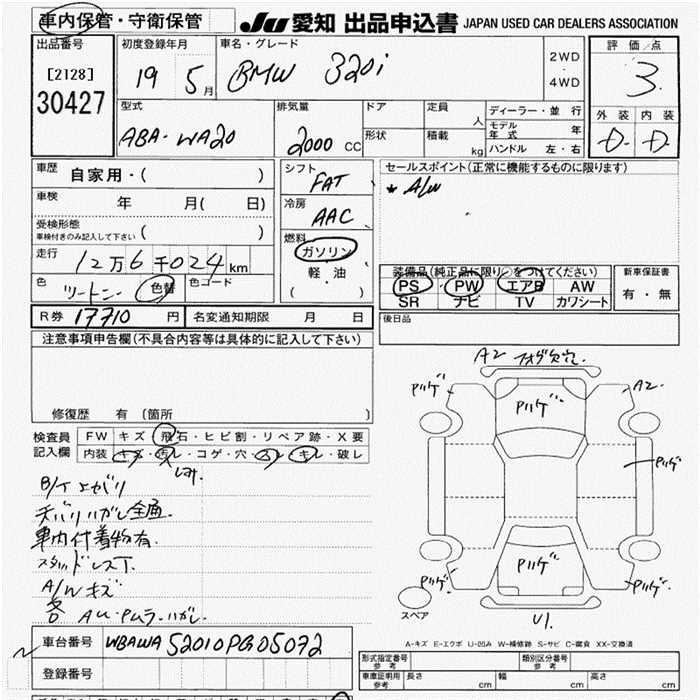 車内保管・守衛保管
JU 愛知 出品申込書 JAPAN USED CAR DEALERS ASSOCIATION
出品番号
[2128]
30427
初度登録年月
19 5月
車名・グレード
BMW 320i
2WD
・
4WD
評価/点
3
外装 内装
D- D-
型式
ABA-WA20
排気量
2000 CC
ドア
形状
定員
人
積載
kg
ディーラー・並行
モデル年式 年
ハンドル 左・右
車歴
自家用・( )
車検
年 月( 日)
受検形態
車検付きのみ記入して下さい ( )
走行
12万6千024km
色
ツートン
色替
色コード
シフト
FAT
冷房
AAC
燃料
ガソリン
軽・油
( )
セールスポイント(正常に機能するものに限ります)
* A/W
装備品(純正品に限り○をつけてください)
PS PW エアB AW
SR ナビ TV カワシート
新車保証書
有・無
R券 17710 円 名変通知期限 月 日
後日品
注意事項申告欄(不具合内容等は具体的に記入して下さい)
修復歴 有 〔箇所 〕
検査員記入欄
FW キズ・飛石・ヒビ割・リペア跡・X要
内装 キズ・汚レ・コゲ・穴・スレ・キレ・破レ
シミ
天バリハガレ全面
車内付着物有.
スタッドレス
A/Wキズ
各
A2
フォグ欠
A2
U1.
スペア
A-キズ E-エクボ U-凹み W-補修跡 S-サビ C-腐食 XX-交換済
車台番号 WBAWA52010PG05072
登録番号
形式指定番号 参考
類別区分番号 参考
車庫証明用 参考 長さ cm 幅 cm 高さ cm